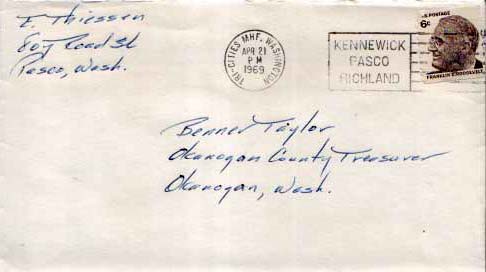 I. Thiessen
807 Road 56
Pasco, Wash.
TRI-CITIES MHF. WASHINGTON
APR 21
PM
1969
KENNEWICK
PASCO
RICHLAND
U.S. POSTAGE
6¢
FRANKLIN D. ROOSEVELT
Benner Taylor
Okanogan County Treasurer
Okanogan, Wash.